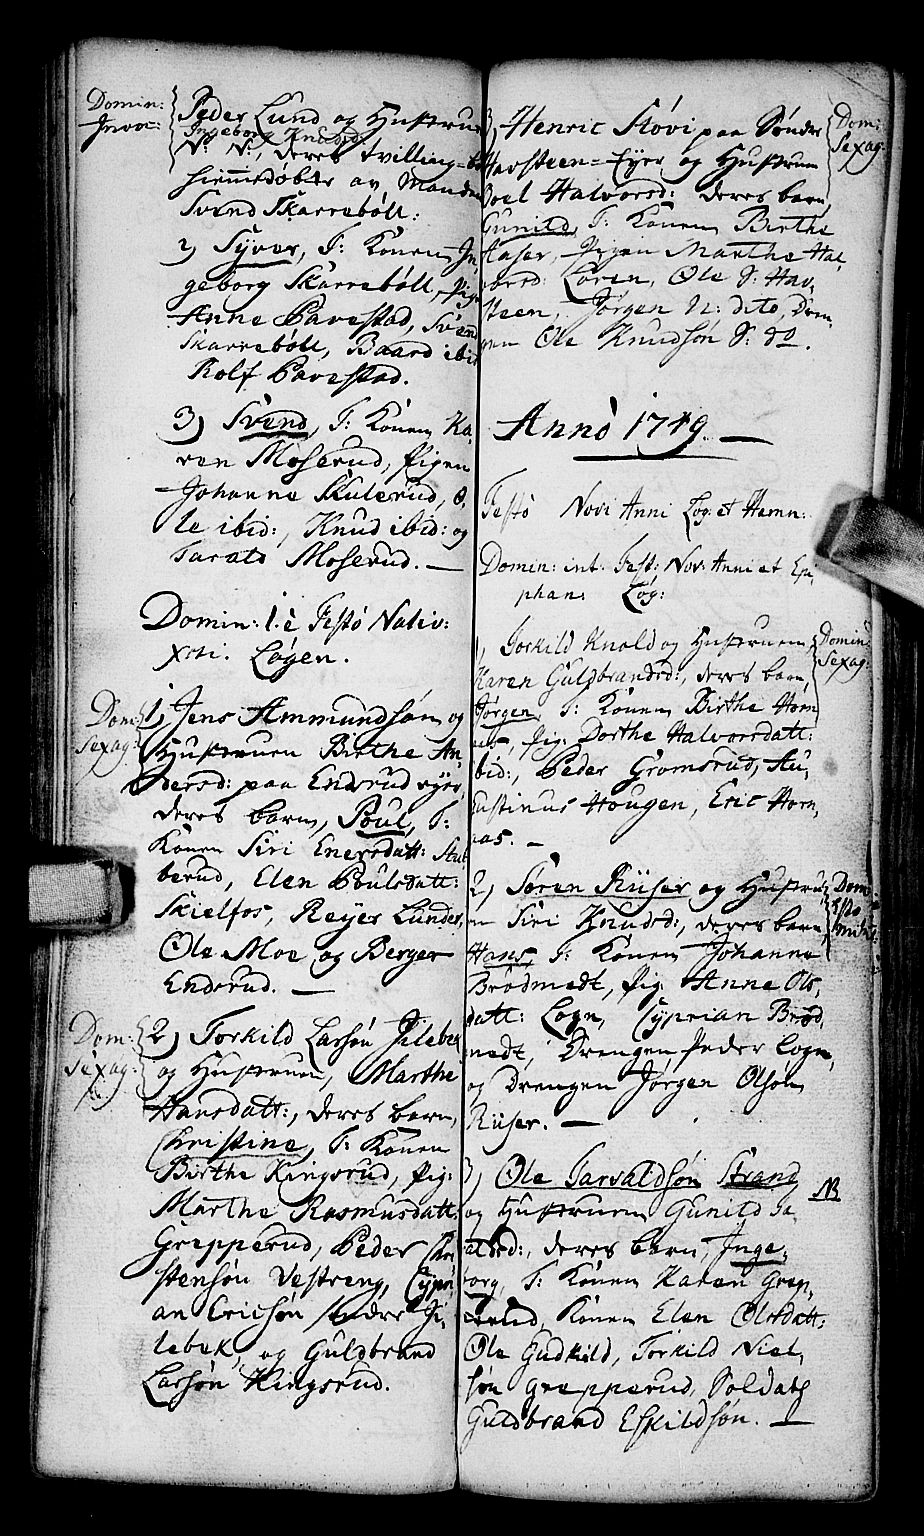 Domin:
Invoc:
Peder Lund og Hustrue
Ingeborg Knudsd:
N: N:, deres tvilling=
hiemmedøbte av Manden
Svend Skarrebøll:
2) Syver, T: Konen In-
geborg Skarrebøll, Pig:
Anne Pavestad, Svend
Skarrebøll, Baard ibid
Rolf Pavestad.
3) Svend, T: Konen Ka-
ren Moserud, Pigen
Johanne Skulerud, O-
le ibid:, Knud ibid: og
Tarald Moserud. —
Domin: 1. à Festo Nativ:
Xsti. Løgen.
Dom:
Sexag:
1, Jens Ammundsøn og
Hustruen Birthe An-
dersd: paa Endrud eyer,
deres barn, Poul, T:
Konen Siri Enersdatt: Stu-
berud, Elen Poulsdatt:
Skielfos, Reyer Lunder,
Ole Moe og Berger
Endrud. —
Dom:
Sexag:
2) Torkild Larsøn Jilebek
og Hustruen, Marthe
Hansdatt:, deres barn,
Christine, T: Konen
Birthe Kingsrud, Pig:
Marthe Rasmusdatt:
Grepperud, Peder Chri-
stensøn Vestreng, Cypri-
an Ericsøn Søndre Ji-
lebek, og Guldbrand
Larsøn Kingsrud.
3, Henric Støvi paa Søndre
Havsteen=Eyer og Hustruen
Joel Halvorsd: deres barn,
Gunild, T: Konen Birthe
Aaser, Pigen Marthe Hal-
vorsd: Løren, Ole S: Hav-
steen, Jørgen N: dito, Dren-
gen Ole Knudsøn S: do.
Dom:
Sexag:
Anno 1749. —
Festo Novi Anni Løg: et Hamn:
Domin: int: Fest: Nov: Anni et Epi-
phan: Løg:
1, Torkild Knold og Hustruen
Karen Guldbrandsd:, deres barn,
Jørgen, T: Konen Birthe Horn-
aas, Pig: Dorthe Halvorsdatt:
ibid:, Peder Gromsrud, Au-
gustinus Hougen, Eric Horn-
aas. —
Domin:
Sexag:
2, Søren Riiser og Hustru-
en Siri Knudsd:, deres barn,
Hans, T: Konen Johanne
Brødmedt, Pig: Anne Ols-
datt: Logn, Cyprian Brød-
medt, Drengen Peder Logn,
og Drengen Jørgen Olsøn
Riiser. —
Dom:
Esto
mihi:
3, Ole Tarvaldsøn Strand
og Hustruen Gunild Ja-
deres barn, Inge-
borg, T: Konen Karen Grep-
perud, Konen Elen Olsdatt:
Ole Gudkild, Torkild Niel-
søn Grepperud, Soldat
Guldbrand Eskildsøn. —
NB